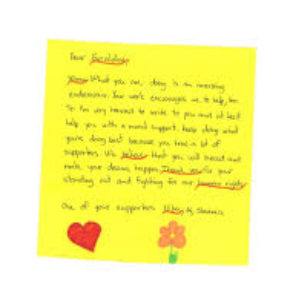 Dear
What you are doing is an amazing
endeavour. Your work encourages us to help, too.
So I'm very honored to write to you and at least
help you with a moral support. Keep doing what
you're doing best because you have a lot of
supporters. We believe that you will succeed and
make your dreams happen. Thank you for your
standing out and fighting for our human rights
One of your supporters